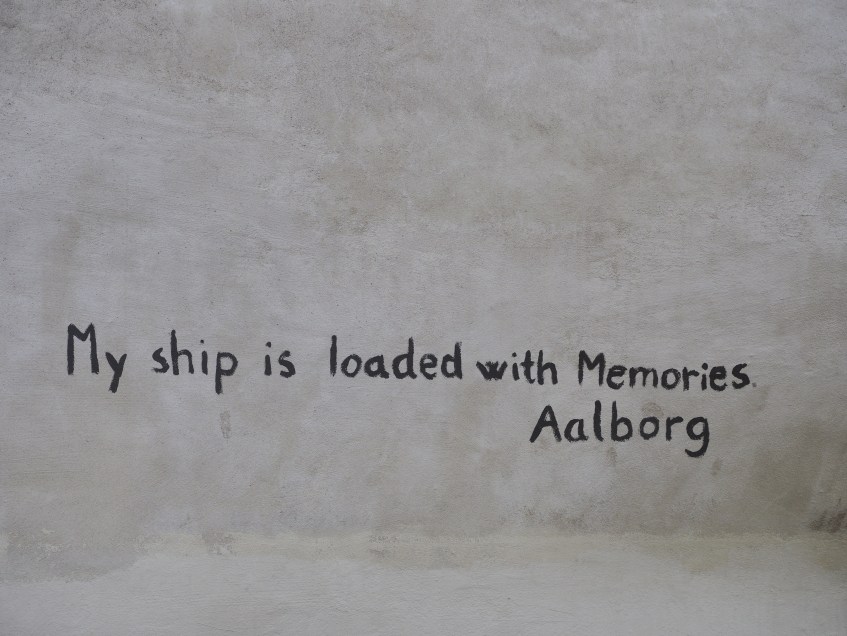 My ship is loaded with Memories.
Aalborg